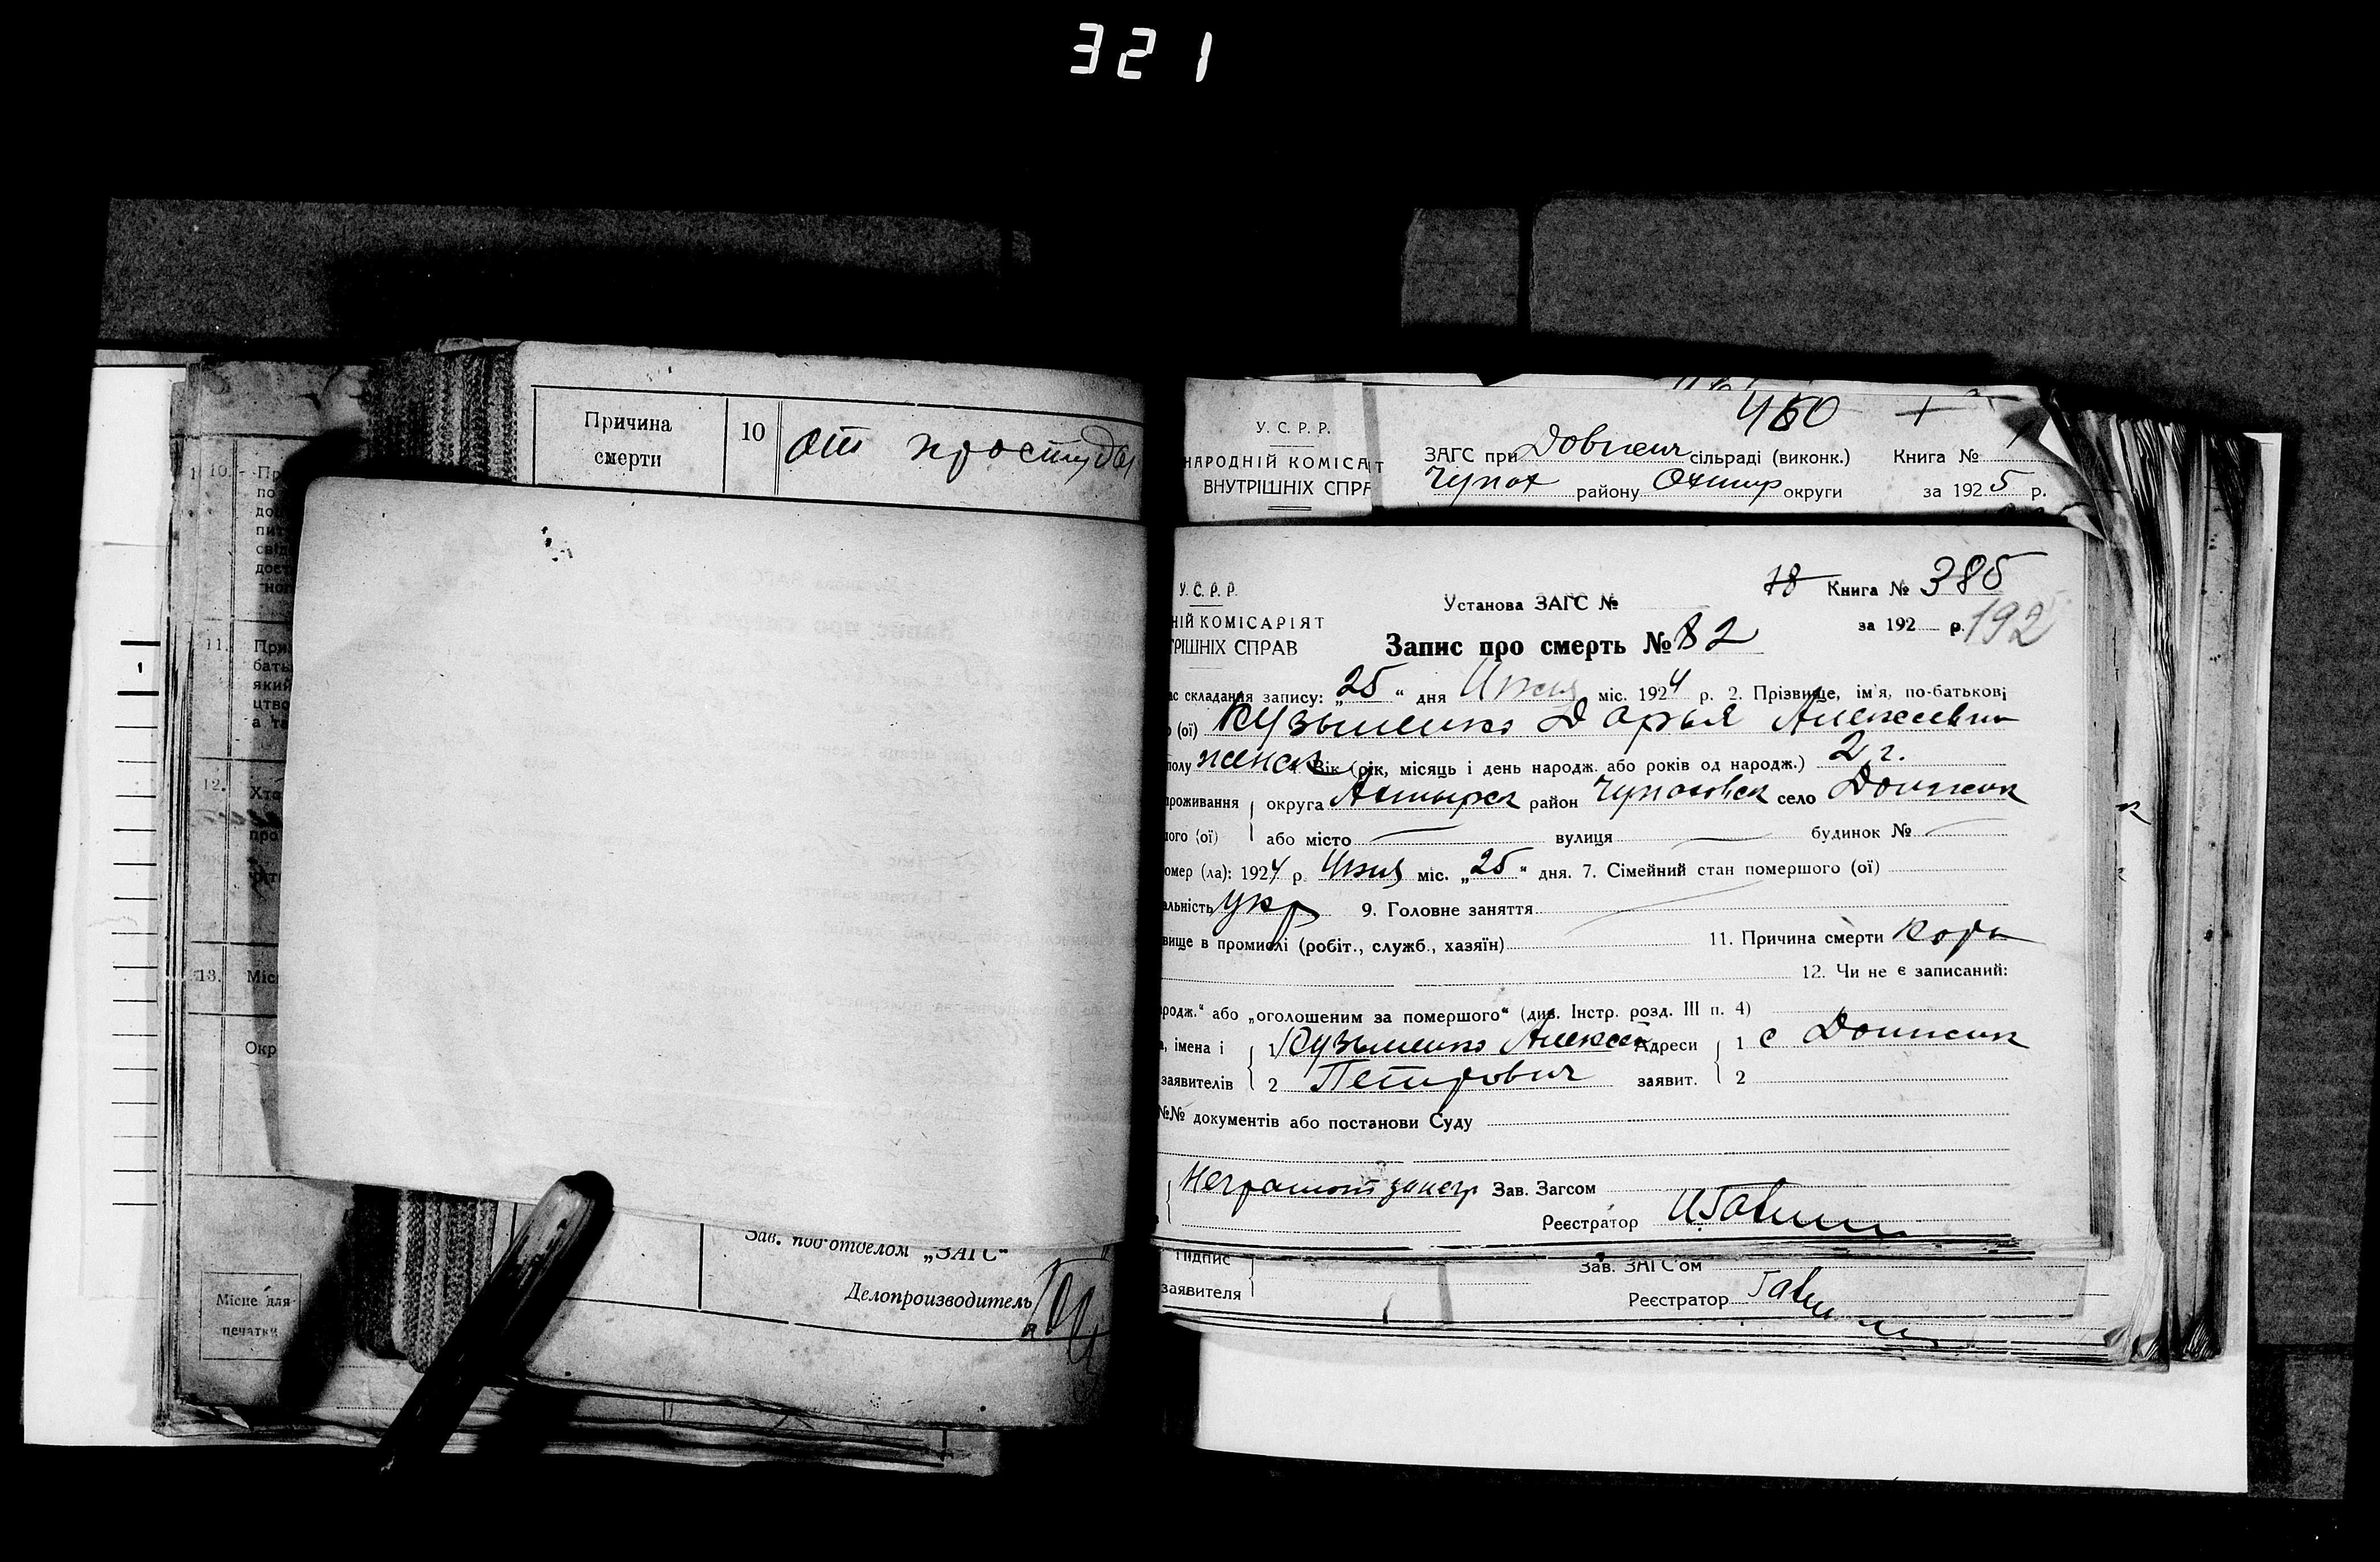 321
Причина
смерти
10
От простуды
10.
11.
12.
13.
Місце для
печатки
Зав. под‘отделом „ЗАГС“
Делопроизводитель
460
У. С. Р. Р.
НАРОДНІЙ КОМІСАТ
ВНУТРІШНІХ СПР
ЗАГС при Довжик сільраді (виконк.) Книга № 1
Чупах району Охтир округи за 1925 р.
У. С. Р. Р.
НІЙ КОМІСАРІЯТ
ТРІШНІХ СПРАВ
Установа ЗАГС №
18 Книга № 385
за 192 р. 192
Запис про смерть № 82
ас складання запису: „25“ дня Июня міс. 1924 р. 2. Прізвище, ім'я, по-батькові
о (ої) Кузьменко Дарья Алексеевна
полу женск Вік (рік, місяць і день народж. або років од народж.) 2 г.
проживання округа Ахтырск район Чупаховск село Должик
ого (ої) або місто вулиця будинок №
омер (ла): 1924 р. Июня міс. „25“ дня. 7. Сімейний стан помершого (ої)
альність укр 9. Головне заняття
вище в промислі (робіт., служб., хазяїн) 11. Причина смерти Корь
12. Чи не є записаний:
родж.“ або „оголошеним за помершого“ (див. Інстр. розд. III п. 4)
, імена і 1 Кузьменко Алексей Адреси 1 с Должик
заявителів 2 Петрович заявит. 2
№№ документів або постанови Суду
Неграмотн Зав. Загсом
Реєстратор
Підпис
заявителя
Зав. ЗАГС'ом
Реєстратор